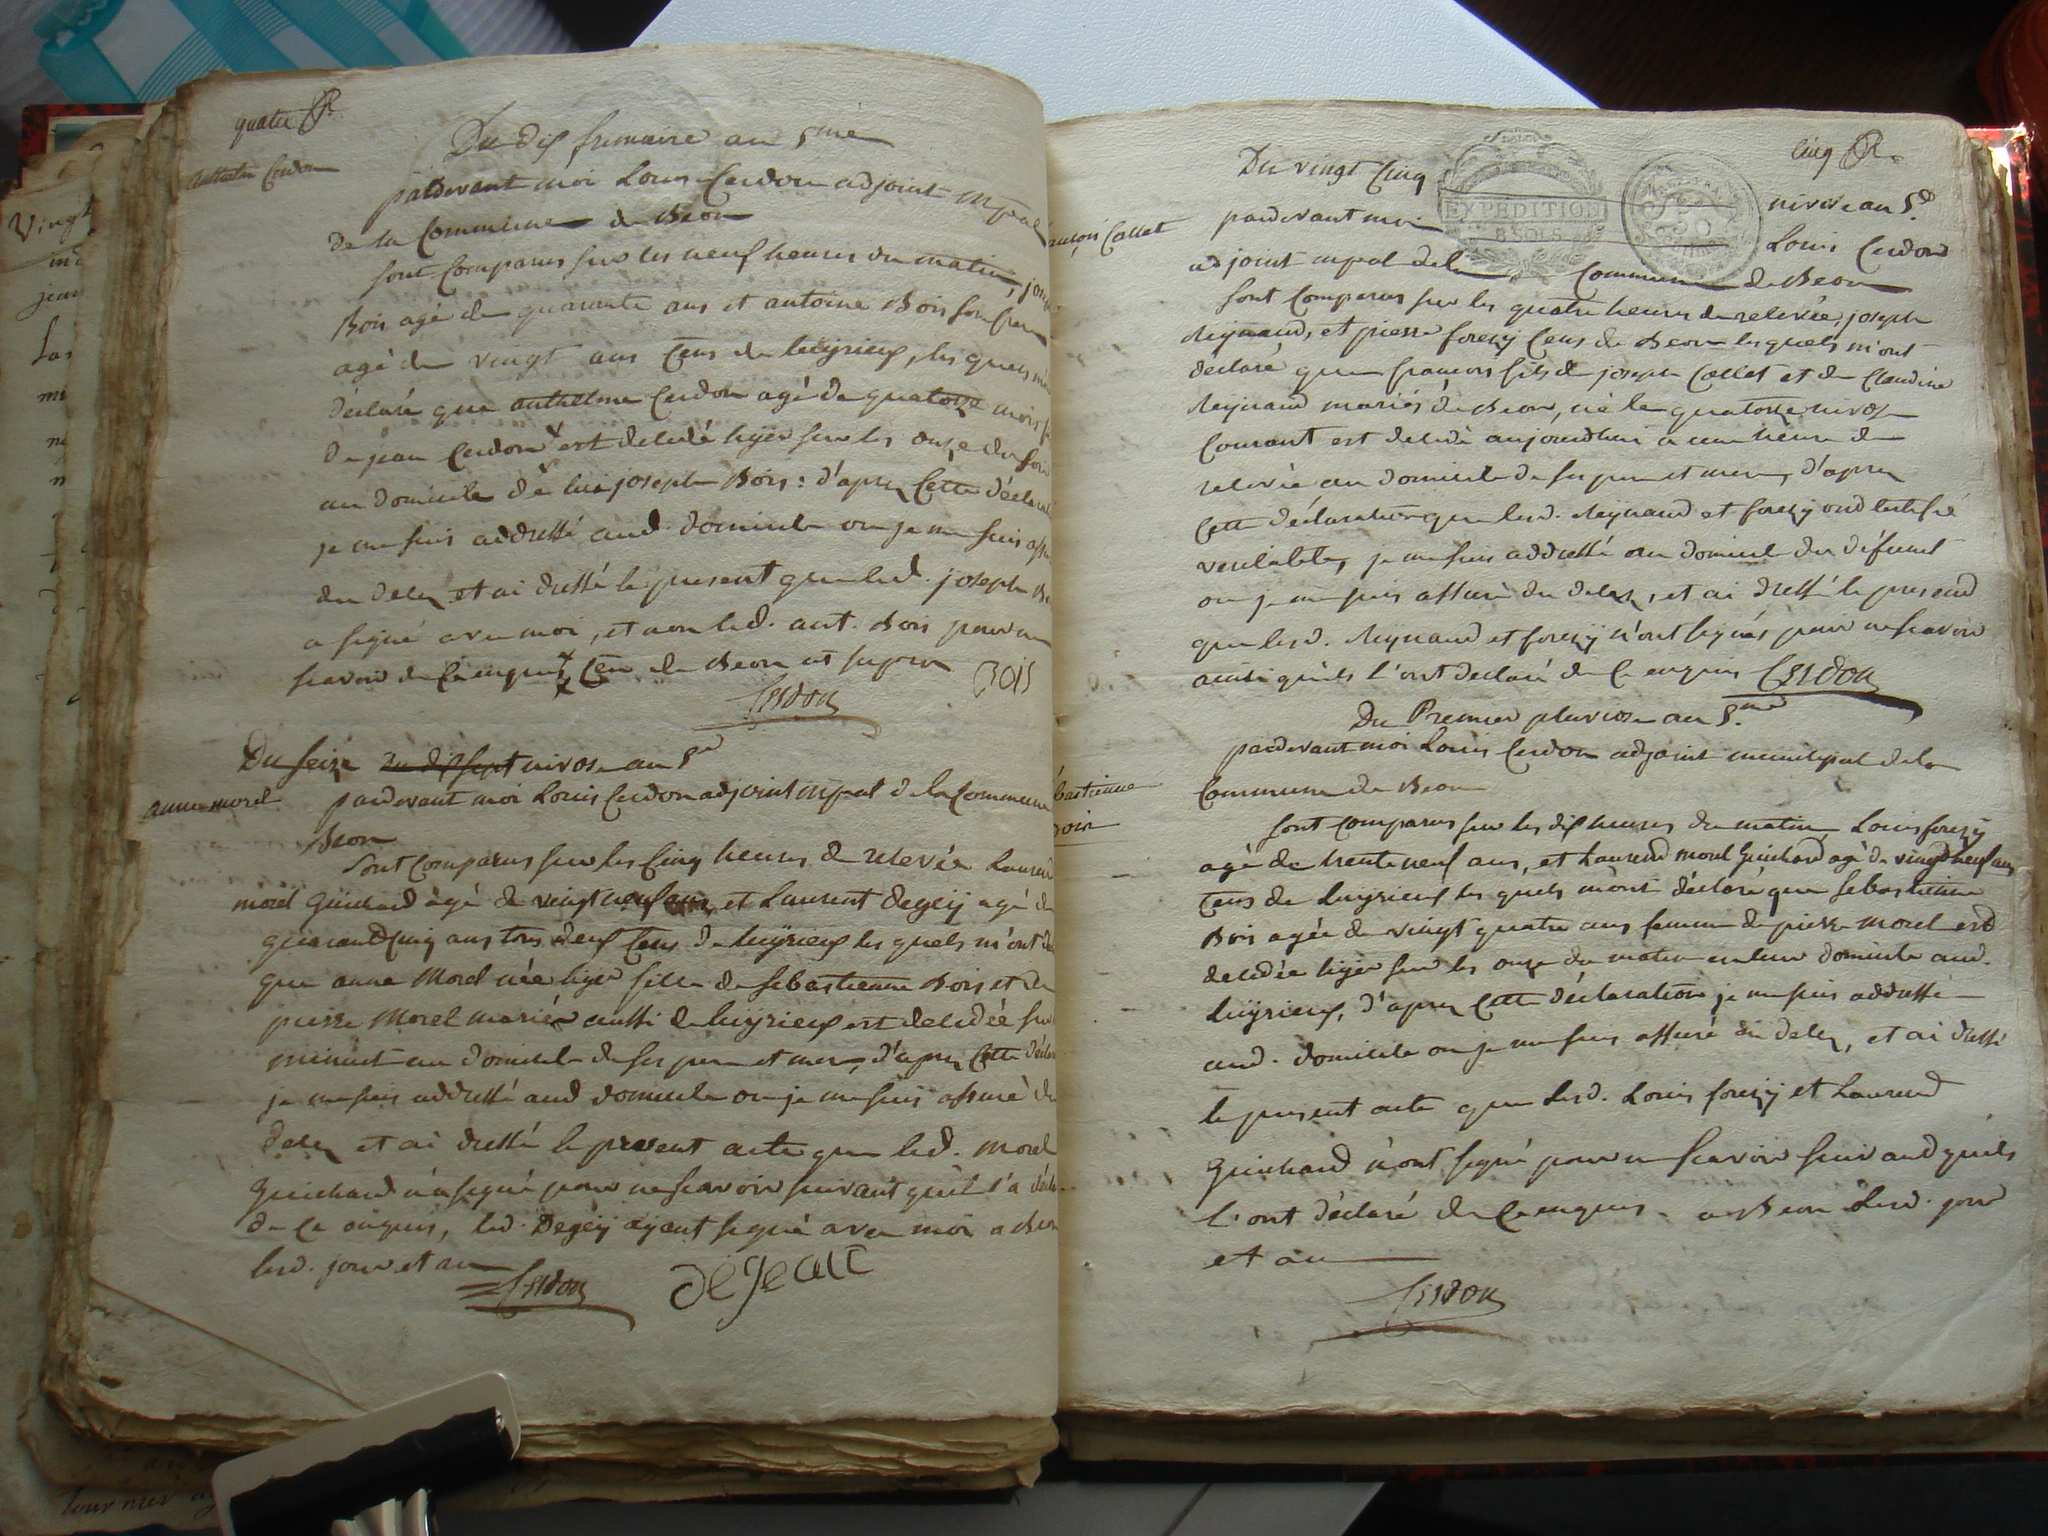 quatre
Du dix frimaire an 5me
anthelme Cerdon
pardevant moi Louis Cerdon adjoint mpal
de la Commune de Beon
sont Comparus sur les neuf heures du matin, jos
Bois agé de quarante ans et antoine Bois son frere
agé de vingt ans Cens de luyrieux, les quels m'o
déclaré que anthelme Cerdon agé de quatorze mois fi
de jean Cerdon est decedé hyer sur les onze du soir
au domicile de lui joseph Bois : d'apres Cette déclarat
je me suis addressé aud. domicile ou je me suis assu
du deces et ai dressé le present que led. joseph Bo
a signé avec moi, et non led. ant. Bois pour ne
scavoir de Ce enquis
de Beon
Bois
Cerdon
Du seize du dix sept nivose an 5e
anne morel
pardevant moi Louis Cerdon adjoint mpal de la Commune
Beon
sont Comparus sur les Cinq heures de relevée Laurend
morel Guichard âgé de vingt neuf ans et Laurent degeij agé de
quarand Cinq ans tous deux Cens de luyrieux les quels m'ont de
que anne Morel née hyer fille de sebastienne Bois et de
pierre Morel mariés aussi de luyrieux est decedée sur
minuit au domicile de ses pere et mere, d'apres Cette décla
je me suis addressé aud domicile ou je me suis assuré du
deces et ai dressé le present acte que led. morel
Guichard n'a signé pour ne scavoir suivant qu'il l'a décl
de Ce enquis, led. Degeij ayant signé avec moi a Beon
lesd. jour et an
Cerdon
dejeait
Cinq
Du vingt Cinq nivose an 5e
EXPÉDITION
8 SOLS
ançois Collet
pardevant moi Louis Cerdon
adjoint mpal de la Commune de Beon
sont Comparus sur les quatre heures de relevée, joseph
Reynaud, et pierre forezy Cens de Beon lesquels m'ont
declaré que francois fils de joseph Collet et de Claudine
Reynaud mariés de Beon, né le quatorze nivose
Courant est decedé aujourdhui a une heure de
relevée au domicile de ses pere et mere, d'apres
Cette déclaration que lesd. Reynaud et forezy ond Certifié
veritable, je me suis addressé au domicile du défunt
ou je me suis assuré du deces, et ai dressé le presend
que lesd. Reynaud et forezy n'ont signés pour ne scavoir
ainsi qu'ils l'ont declaré de Ce enquis Cerdon
Du Premier pluviose an 5.me
pardevant moi Louis Cerdon adjoint municipal de la
Commune de Beon
bastienne
Bois
sont Comparus sur les dix heures du matin Louis forezy
agé de trente neuf ans, et Laurend morel Guichard agé de vingt neuf ans
Cens de luyrieux les quels m'ont déclaré que sebastienne
Bois agée de vingt quatre ans femme de pierre Morel est
decedée hyer sur les onze du matin en leur domicile aud.
luyrieux, d'apres Cette déclaration je me suis addressé
aud. domicile ou je me suis assuré du deces, et ai dressé
le present acte que lesd. Louis forezy et Laurend
Guichard n'ont signé pour ne scavoir suivand qu'ils
l'ont déclaré de Ce enquis a Beon lesd. jour
et an
Cerdon